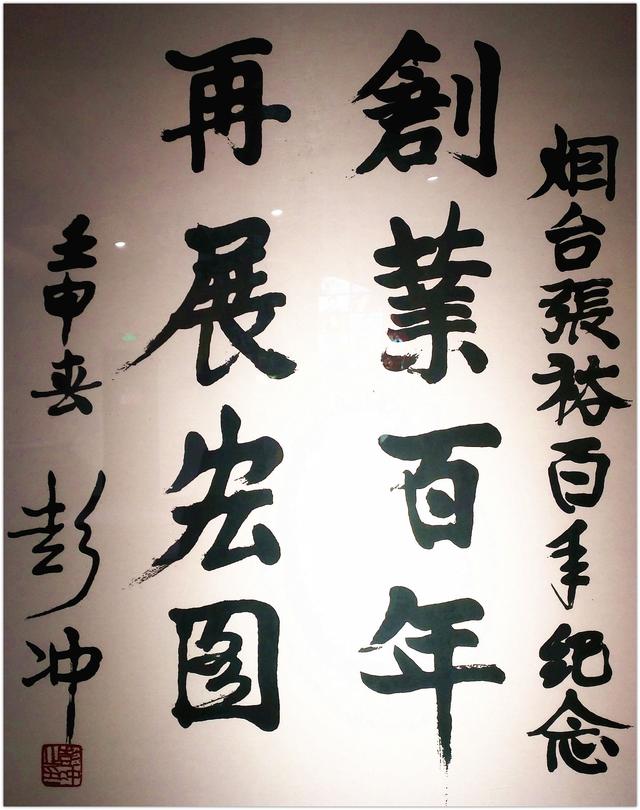 烟台張裕百年纪念
創業百年
再展宏图
壬申春 彭冲